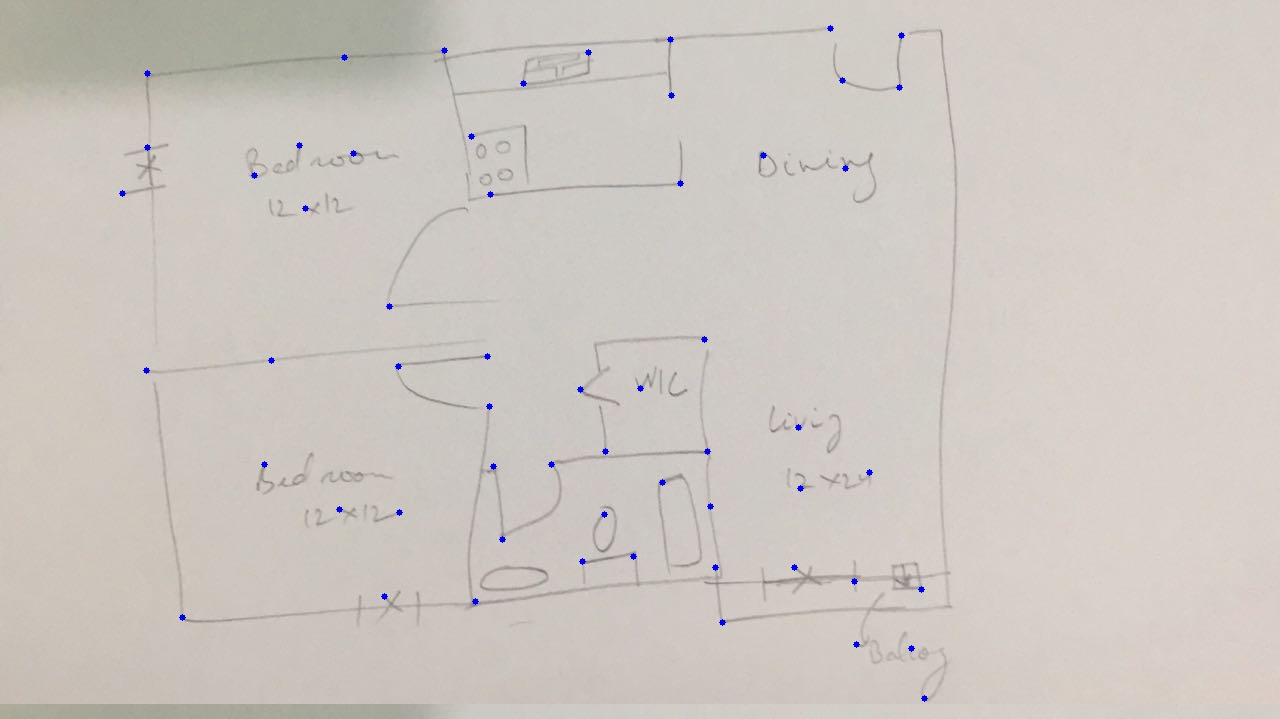 Bedroom
12x12
Dining
WIC
Living
12x24
Bedroom
12x12
Balcony